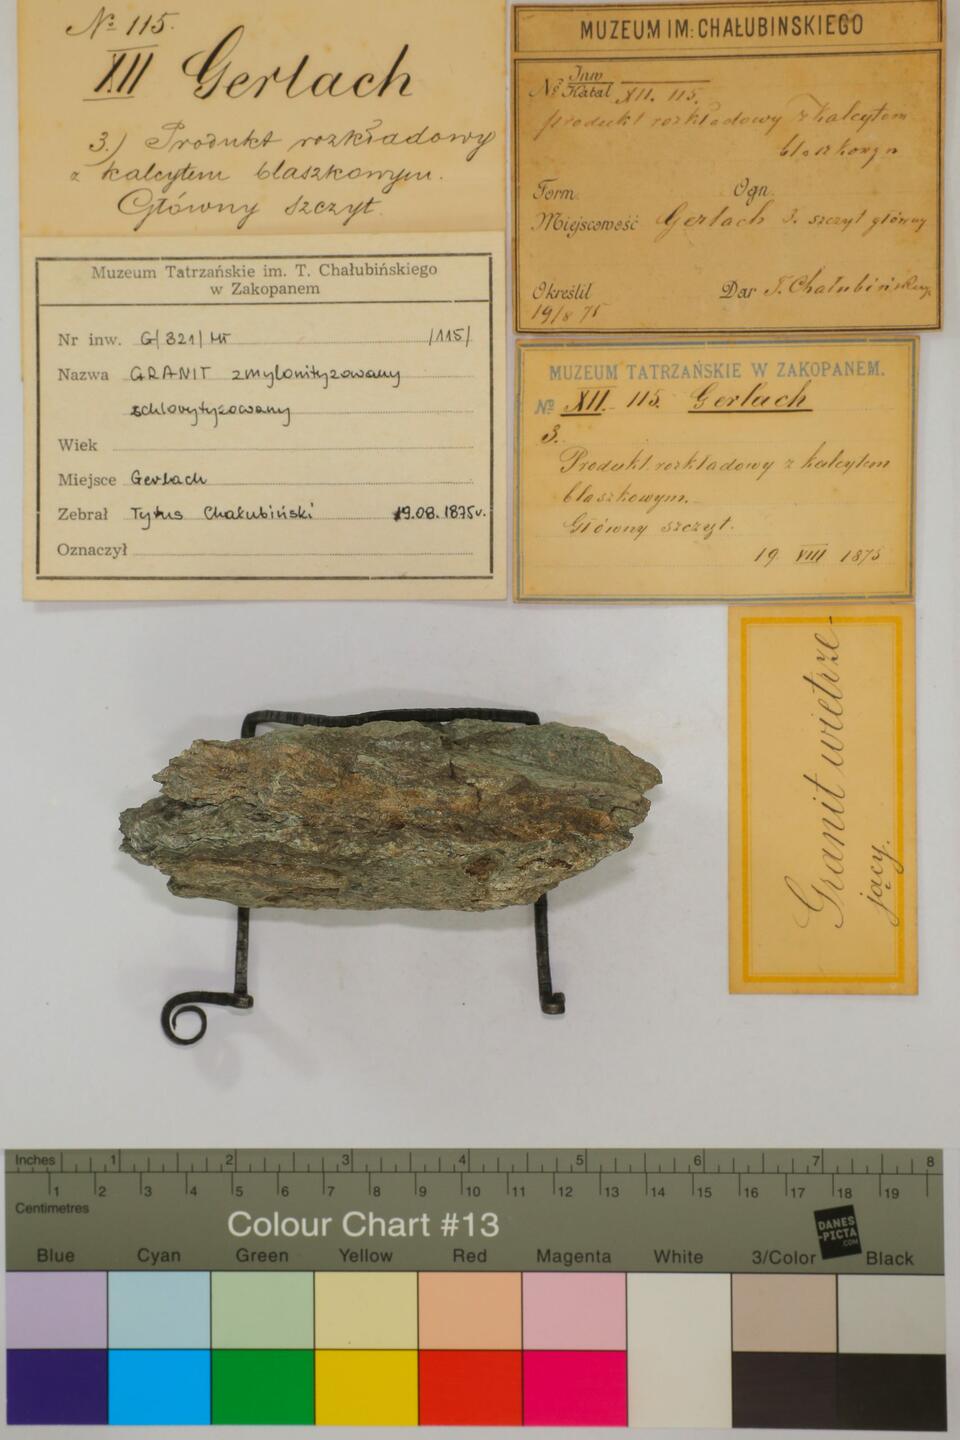 № 115.
XII Gerlach
3.) Produkt rozkładowy
z kalcytem blaszkowym.
Główny szczyt.
MUZEUM IM: CHAŁUBINSKIEGO
№ Inw
Katal XII. 115.
produkt rozkładowy z kalcytem
blaszkowym
Form. Ogn.
Miejscowość Gerlach 3. szczyt główny
Określil Dar T. Chałubińskiego
19/8 75
Muzeum Tatrzańskie im. T. Chałubińskiego
w Zakopanem
Nr inw. G/321/MT /115/
Nazwa GRANIT zmylonityzowany
schlorytyzowany
Wiek
Miejsce Gerlach
Zebrał Tytus Chałubiński 19.08.1875r.
Oznaczył
MUZEUM TATRZAŃSKIE W ZAKOPANEM.
№ XII. 115. Gerlach
3.
Produkt rozkładowy z kalcytem
blaszkowym.
Główny szczyt.
19 VIII 1875
Granit wietrze-
jący.
Inches 1 2 3 4 5 6 7 8
1 2 3 4 5 6 7 8 9 10 11 12 13 14 15 16 17 18 19
Centimetres
Colour Chart #13
DANES
-PICTA
.COM
Blue Cyan Green Yellow Red Magenta White 3/Color Black